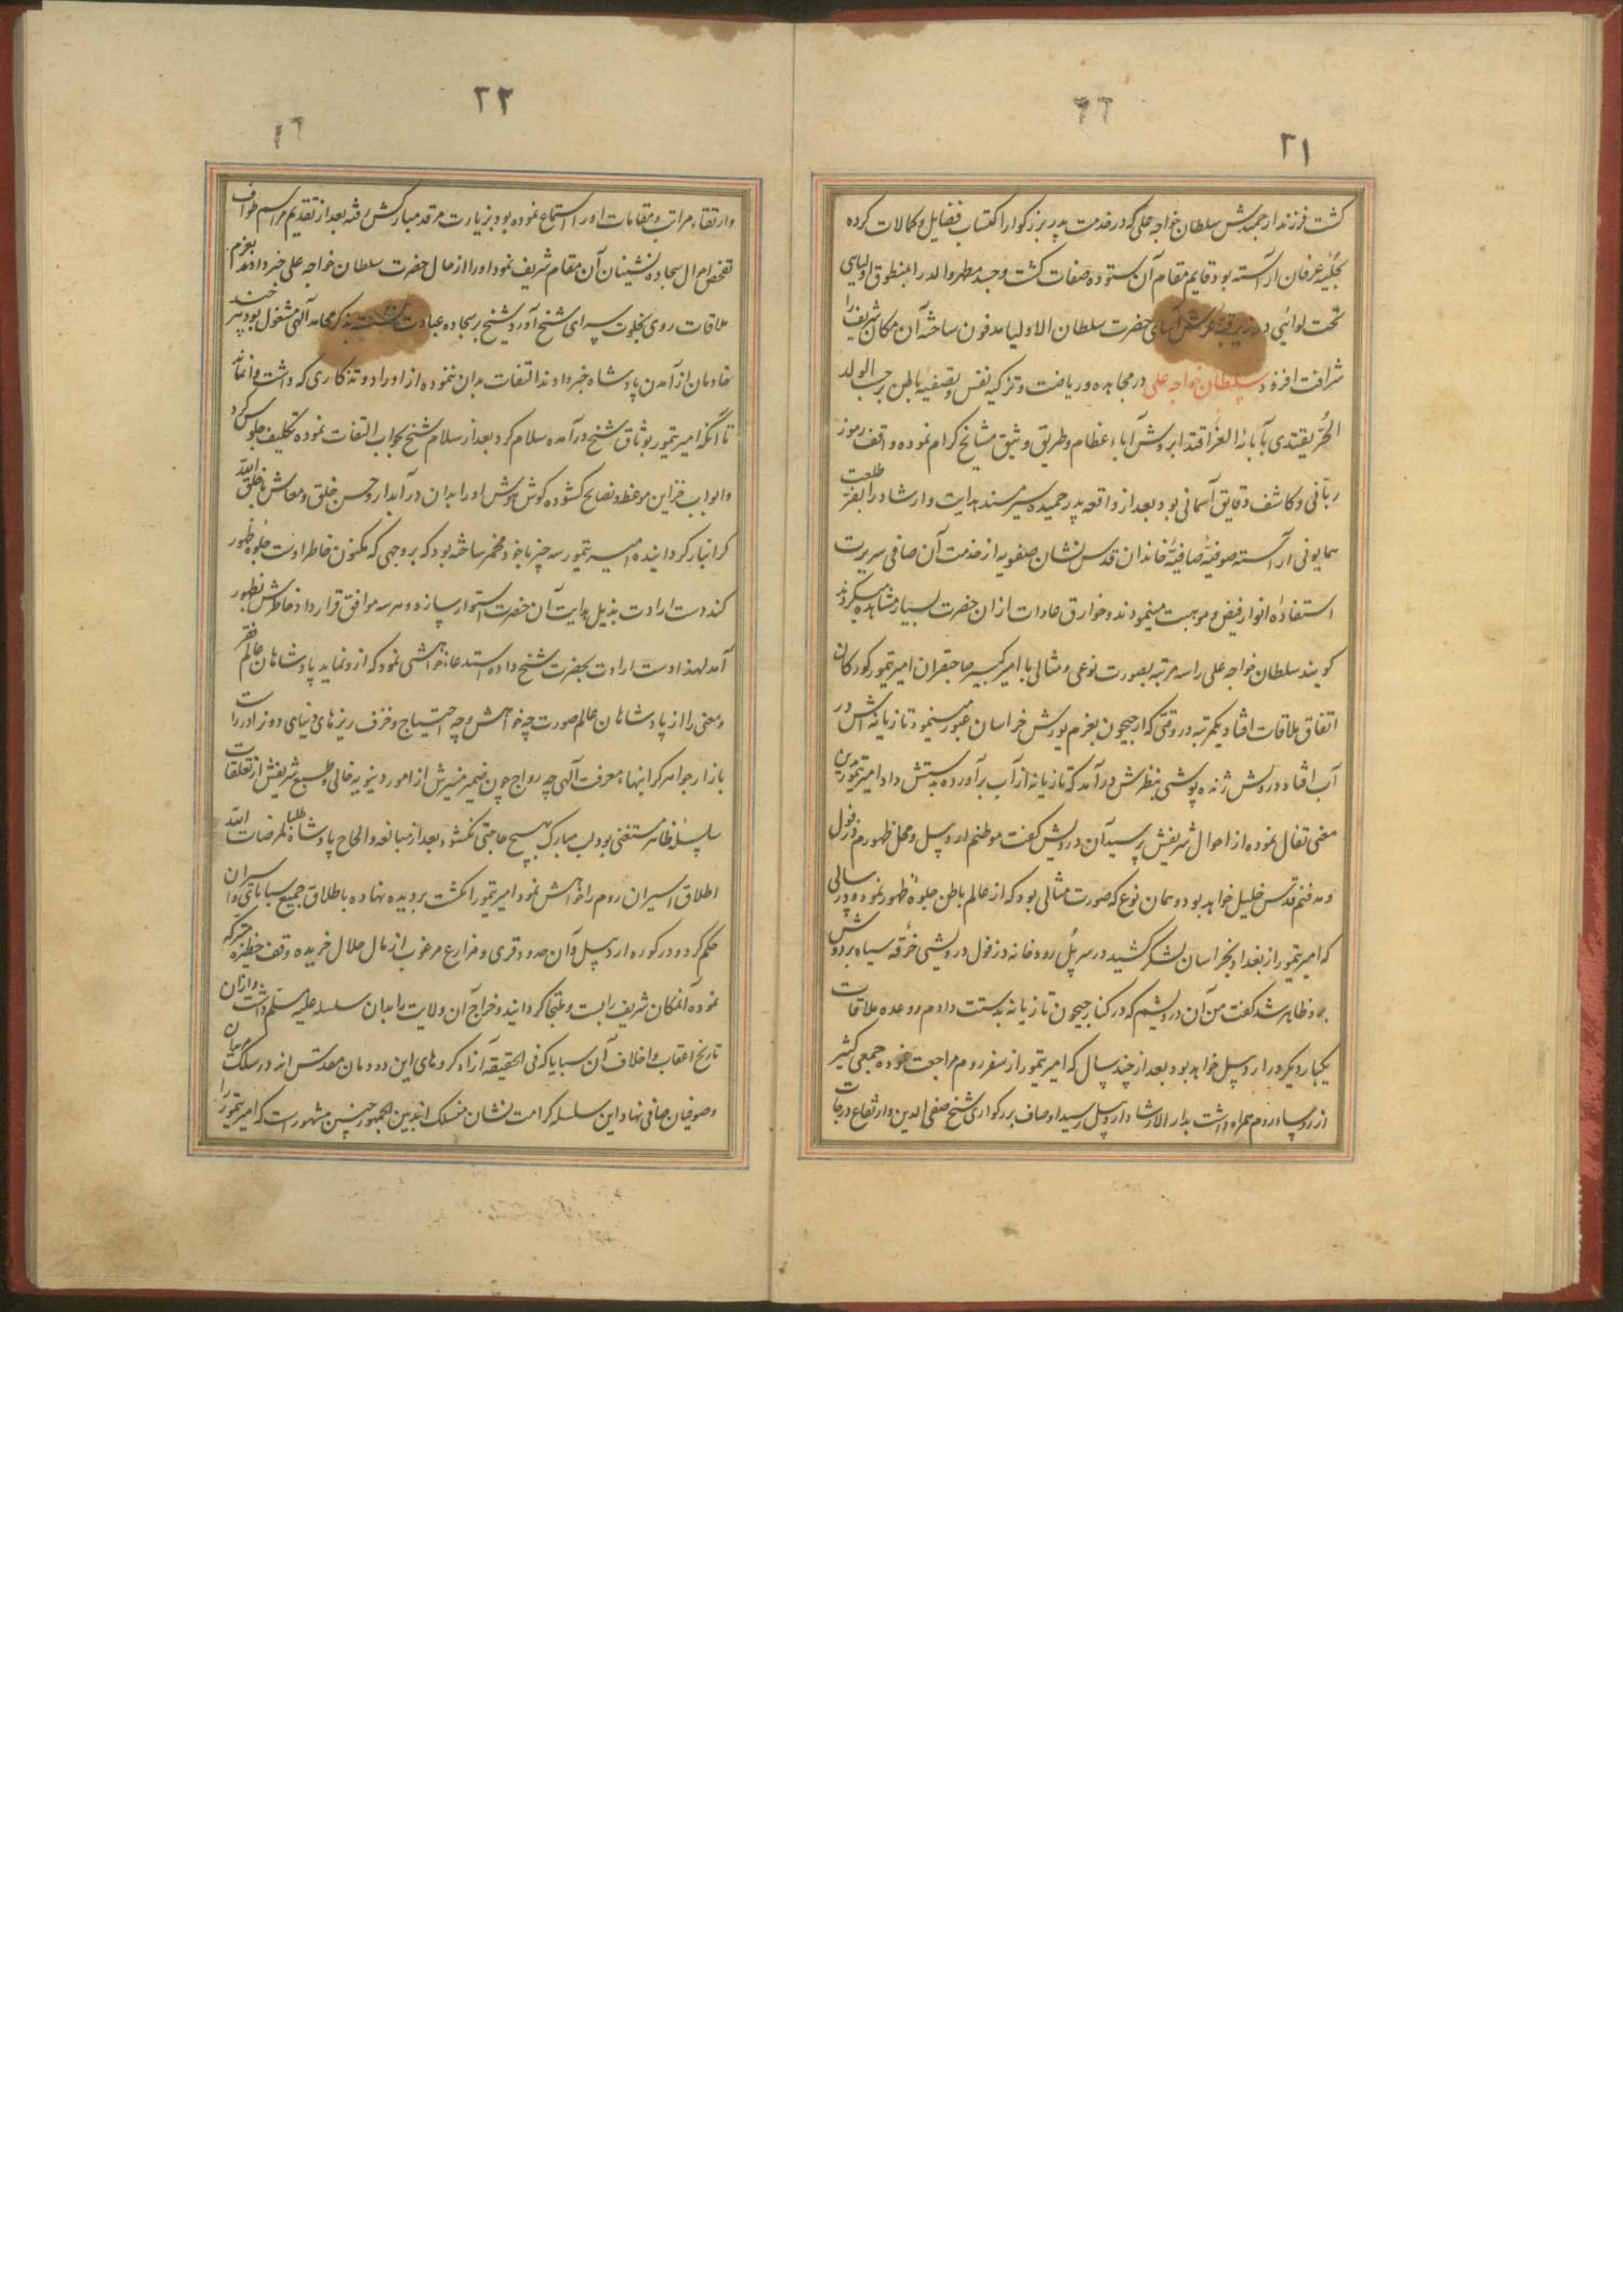 ۲۱
گشت فرزند ارجمندش سلطان خواجه علی که در خدمت پدر بزرگوار اکتساب فضایل و کمالات کرده
بحلیهٔ عرفان آراسته بود قایم مقام آن ستوده صفات گشت و جسد مطهر والد را بمنطوق اولیای
تحت لوائی در زیر قبهٔ عرش آسای حضرت سلطان الاولیا مدفون ساخته آن مکان شریف را
شرافت افزود سلطان خواجه علی در مجاهده و ریاضت و تزکیه نفس و تصفیه باطن برحسب الولد
الحُر یقتدی بآبائه الغُر اقتدا بروش آباء عظام و طریق وثیق مشایخ کرام نموده واقف رموز
ربّانی و کاشف دقایق آسمانی بود بعد از واقعه پدر حمیده سیر مسند هدایت و ارشاد را بفر طلعت
همایونی آراسته صوفیهٔ صافیهٔ خاندان قدس نشان صفویه از خدمت آن صافی سریرت
استفادهٔ انوار فیض و موهبت مینمودند و خوارق عادات از ان حضرت بسیار مشاهده میکردند
کویند سلطان خواجه علی را سه مرتبه بصورت نوعی و مثالی با امیر کبیر صاحبقران امیر تیمور کورکان
اتفاق ملاقات افتاد یکمرتبه در وقتی که از جیحون بعزم یورش خراسان عبور مینمود تازیانه اش در
آب افتاد درویش ژنده پوشی بنظرش درآمد که تازیانه از آب برآورده بدستش داد امیر تیمور بدین
معنی تفال نموده از احوال شریفش پرسید آن درویش کفت موطنم اردبیل و محل ظهورم دزفول
و مدفنم قدس خلیل خواهد بود و همان نوع که صورت مثالی بود که از عالم باطن جلوهٔ ظهور نمود و در سالی
که امیر تیمور از بغداد بخراسان لشکر کشید در سر پُل رودخانه دزفول درویشی خرقه سیاه بر دوش
برو ظاهر شد کفت من آن درویشم که در کنار جیحون تازیانه بدستت دادم و وعده ملاقات
یکبار دیکر در اردبیل خواهد بود بعد از چند سال که امیر تیمور از سفر روم مراجعت نموده جمعی کثیر
از سپاه روم همراه داشت بدار الارشاد اردبیل رسید اوصاف بزرکواری شیخ صفی الدین و ارتفاع درجات
۲۲
و ارتقاء مراتب و مقامات او را استماع نموده بود بزیارت مرقد مبارکش رفته بعد از تقدیم مراسم طواف
تفحص احوال سجاده نشینان آن مقام شریف نمود او را از حال حضرت سلطان خواجه علی خبر دادند بعزم
ملاقات روی بخلوت سرای شیخ آورد شیخ بر سجاده عبادت نشسته بذکر محامد آلهی مشغول بود هر چند
خادمان از آمدن پادشاه خبر دادند التفات بدان ننموده از اوراد و تذکاری که داشت وانماند
تا آنکه امیر تیمور بوثاق شیخ درآمده سلام کرد بعد از سلام شیخ بجواب التفات نموده تکلیف جلوس کرد
و ابواب خزاین موعظه و نصایح کشوده کوش هوش او را بدان درّ آبدار و حسن خلق و معاش با خلق الله
کرانبار کردانیده امیر تیمور سه چیز با خود مخمر ساخته بود که بر وجهی که مکنون خاطر اوست جلوه ظهور
کند دست ارادت بذیل هدایت آن حضرت استوار سازد و هر سه موافق قرارداد خاطرش بظهور
آمد لهذا دست ارادت بحضرت شیخ داده استدعا خواهشی نمود که ازو نماید پادشاهان عالم فقر
و معنی را از پادشاهان عالم صورت چه خواهش و چه احتیاج و خزف ریزهای دنیای دون را در راست
بازار جواهر کرانبهاء معرفت آلهی چه رواج چون ضمیر منیرش از امور دنیویه خالی و طبع شریفش از تعلقات
سلسلهٔ ظاهر مستغنی بود لب مبارک بهیچ حاجتی نکشود بعد از مبالغه و الحاح پادشاه طلبا لمرضات الله
اطلاق اسیران روم را خواهش نمود امیر تیمور انکشت بر دیده نهاده باطلاق جمیع سبایای و اسیران
حکم کرد و در کوره اردبیل و آن حدود قری و مزارع مرغوب از مال حلال خریده وقف حظیره متبرکه
نموده آنمکان شریف را بست و ملتجا کردانید و خراج آن ولایت را بدان سلسله علیه مسلّم داشت و از آن
تاریخ اعقاب و اخلاف آن سبایا که فی الحقیقه آزاد کرده های این دودمان مقدس اند در سلک
و صوفیان صافی نهاد این سلسله کرامت نشان منسلک اند بین الجمهور چنین مشهور است که امیر تیمور را